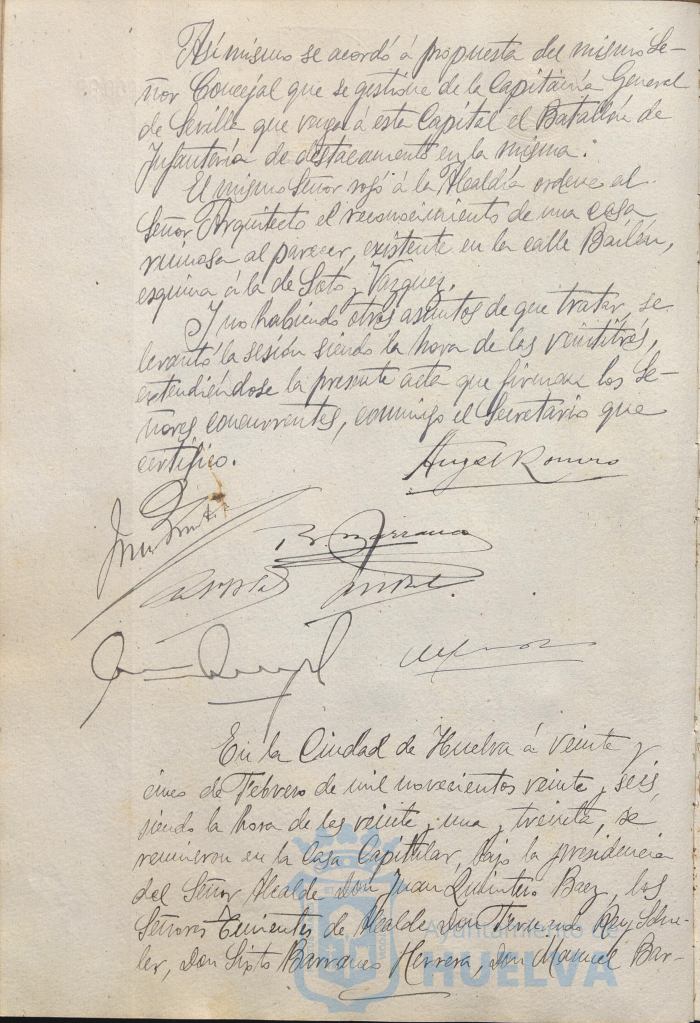 Asimismo se acordó á propuesta del mismo Se-
ñor Concejal que se gestione de la Capitanía General
de Sevilla que venga á esta Capital el Batallón de
Infantería de destacamento en la misma.
El mismo Señor rogó á la Alcaldía ordene al
Señor Arquitecto el reconocimiento de una casa,
ruinosa al parecer, existente en la calle Bailén,
esquina á la de Soto y Vazquez.
Y no habiendo otros asuntos de que tratar, se
levantó la sesión siendo la hora de las veintitres,
extendiéndose la presente acta que firman los Se-
ñores concurrentes, conmigo el Secretario que
certifico.
Angel Romero
En la Ciudad de Huelva á veinte y
cinco de Febrero de mil novecientos veinte y seis,
siendo la hora de las veinte y una y treinta, se
reunieron en la Casa Capitular, bajo la presidencia
del Señor Alcalde Don Juan Quintero Baez, los
Señores Tenientes de Alcalde Don Fernando Rey
ler, Don Sixto Barranco Herrera, Don Manuel Bar-
Ayuntamiento de
HUELVA